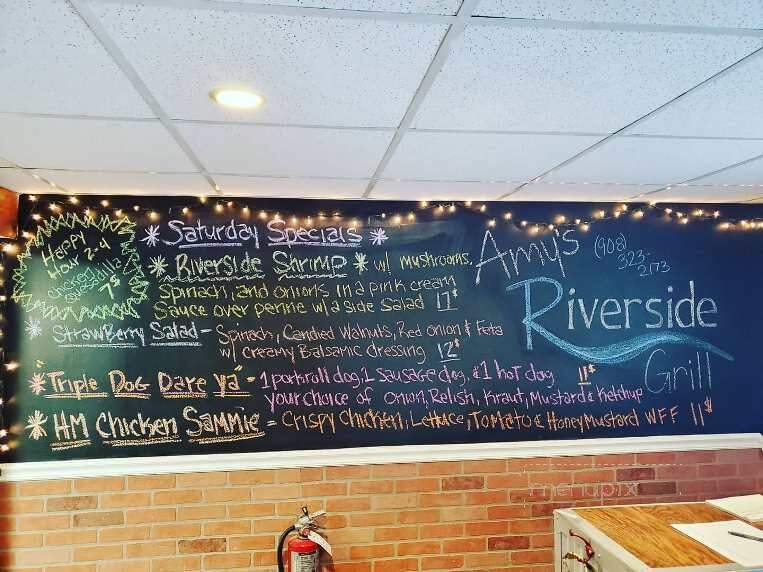 Happy
Hour 2-4
chicken
quesadilla
7$
* Saturday Specials *
* Riverside Shrimp * w/ mushrooms,
Spinach, and onions in a pink cream
Sauce over penne w/ a side Salad 17$
* Strawberry Salad - Spinach, Candied Walnuts, Red onion & Feta
w/ creamy Balsamic dressing 12$
* "Triple Dog Dare Ya" - 1 porkroll dog, 1 Sausage dog, & 1 hot dog 11$
your choice of onion, Relish, Kraut, Mustard & Ketchup
* HM Chicken Sammie = Crispy Chicken, Lettuce, Tomato & Honey Mustard WFF 11$
Amy's
Riverside
Grill
(908)
323-
2173
menupix